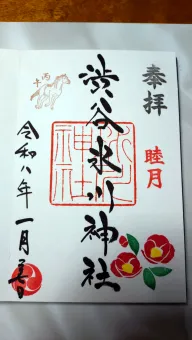 奉拝
睦月
渋谷氷川神社
氷川神社
丙午
令和八年一月吉日